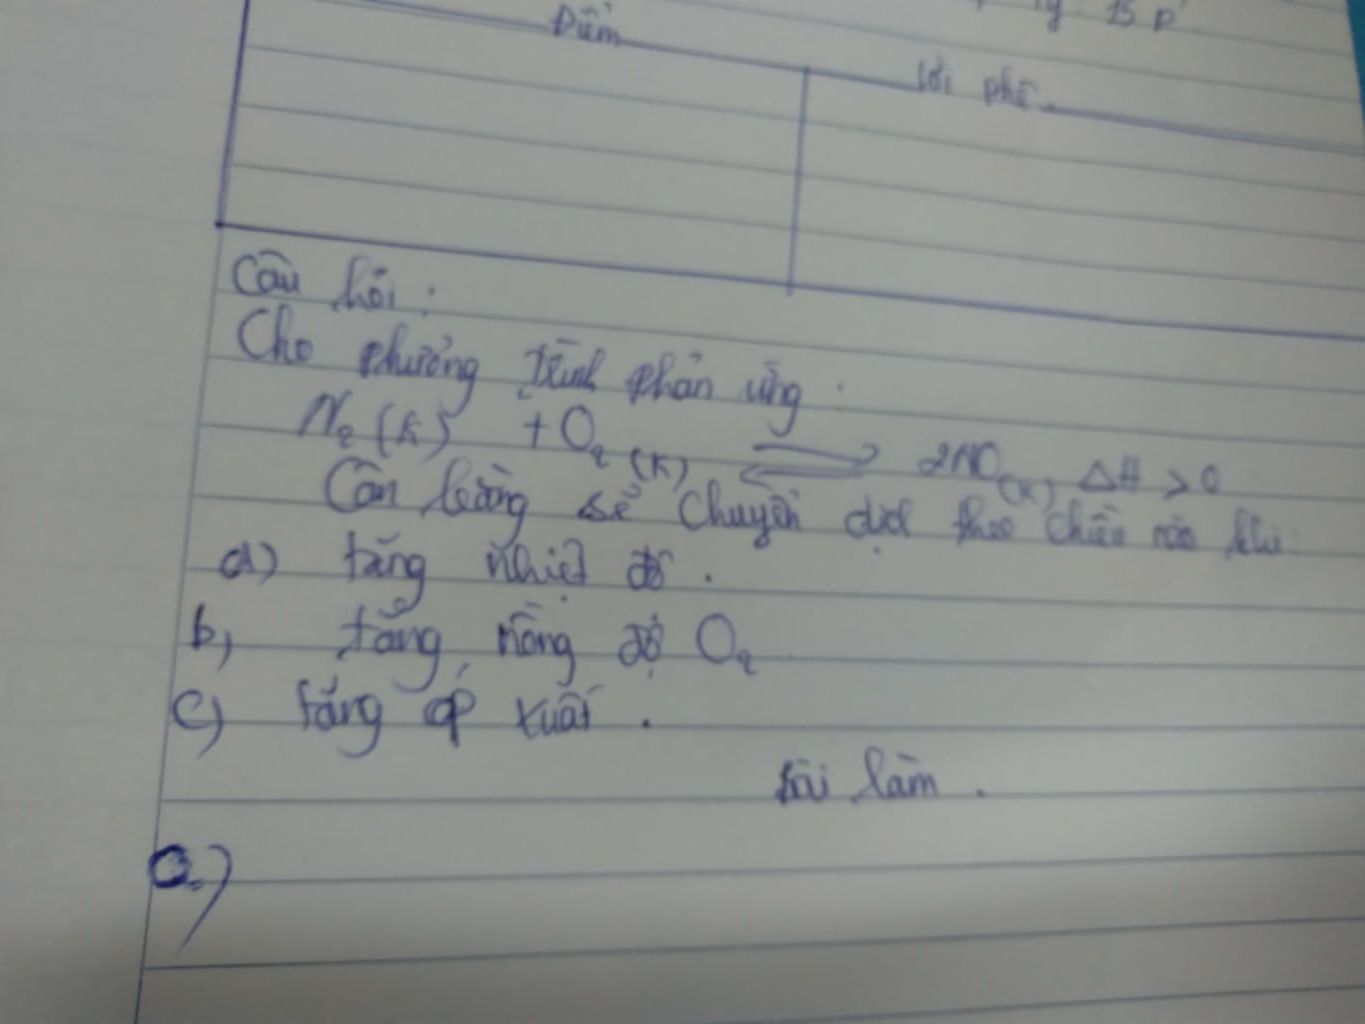 15 p'
Điểm
Lời phê
Câu hỏi :
Cho phương trình phản ứng :
N2 (K) + O2 (K) ⇌ 2NO (K) ΔH > 0
Cân bằng sẽ chuyển dịch theo chiều nào khi
a) tăng nhiệt độ .
b, tăng nồng độ O2
c) tăng áp xuất .
Bài làm .
a.)